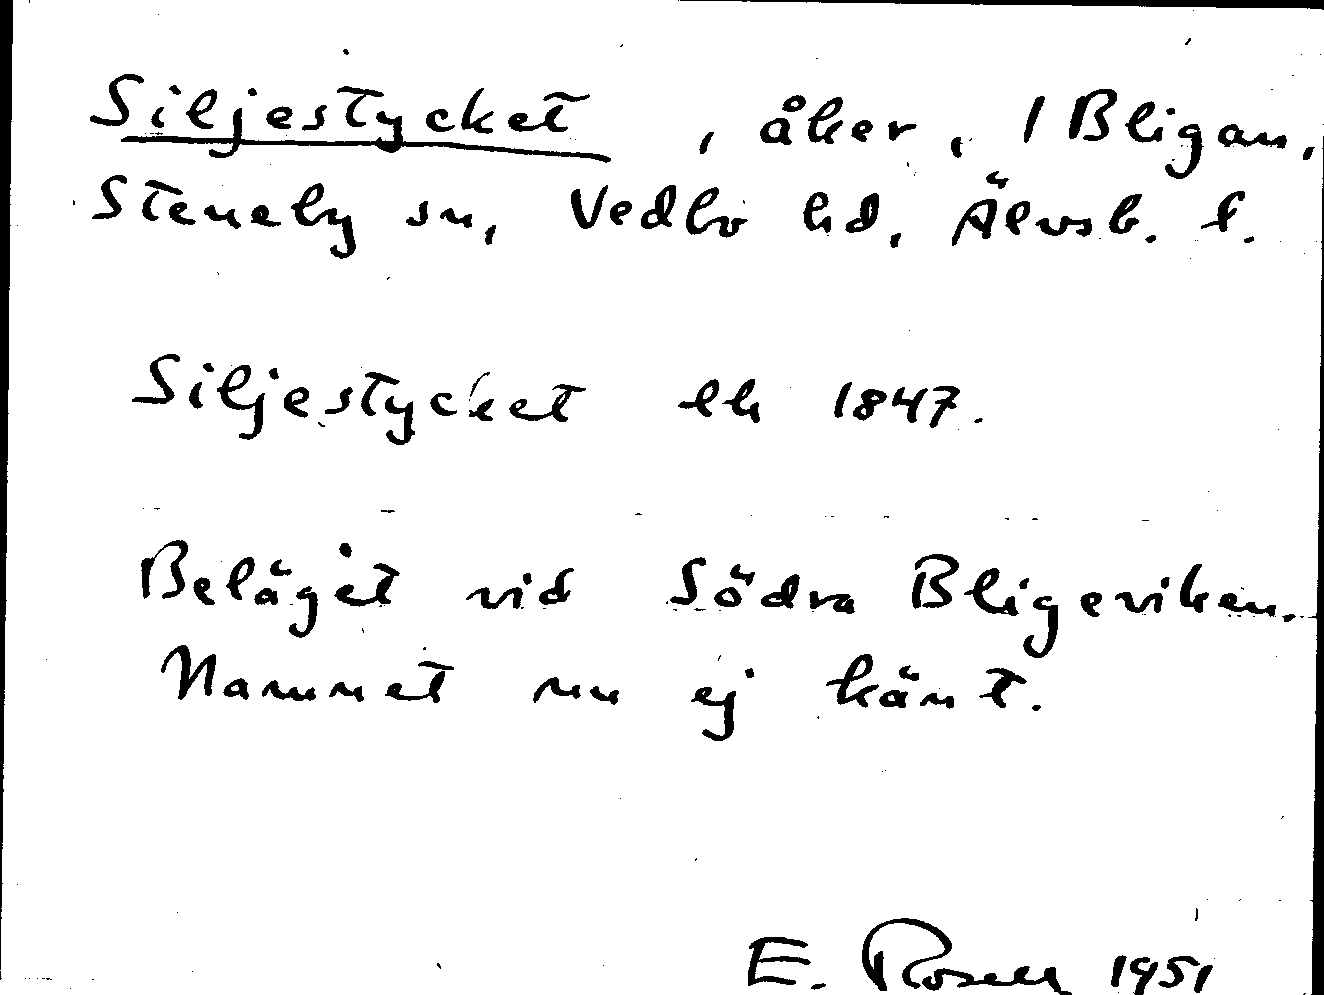 Siljestycket, åker, 1 Bligan,
Steneby sn, Vedbo hd, Älvsb. l.
Siljestycket lh 1847.
Beläget vid Södra Bligeviken.
Namnet nu ej känt.
E. Rosell 1951